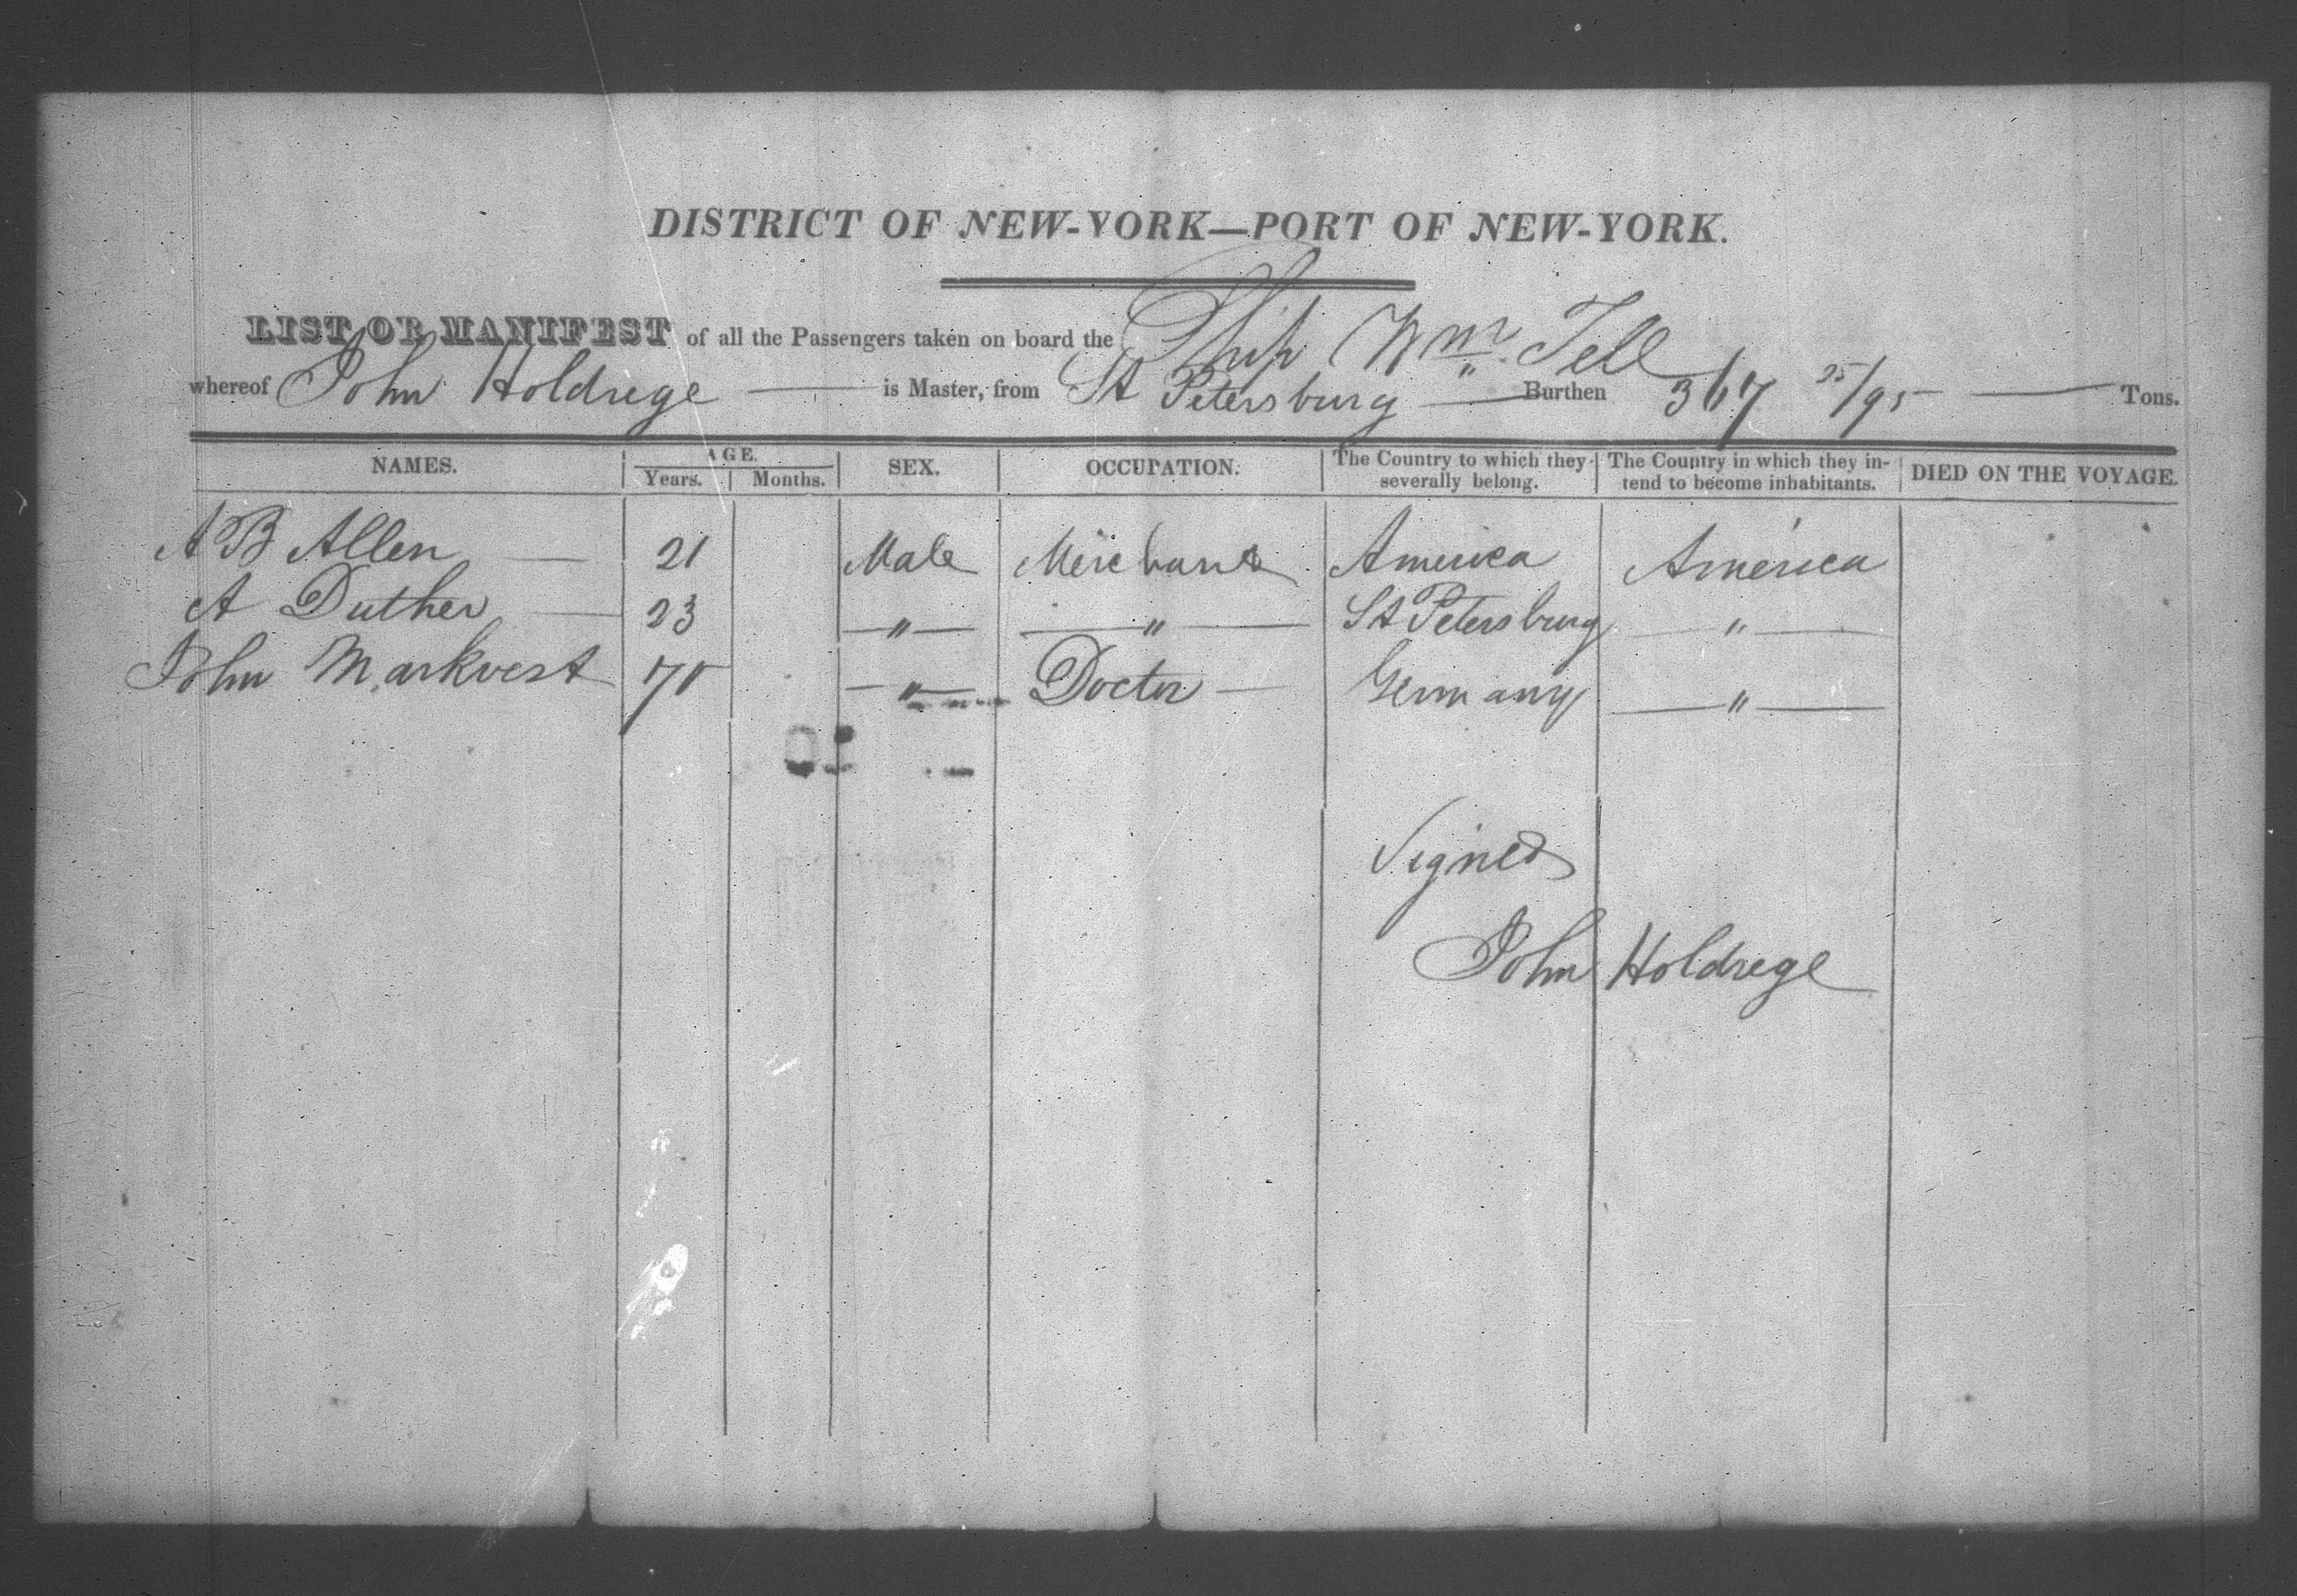 DISTRICT OF NEW-YORK—PORT OF NEW-YORK.
LIST OR MANIFEST of all the Passengers taken on board the Ship Wm Tell
whereof John Holdrege — is Master, from St Petersburg — Burthen 367 25/95 — Tons.
NAMES. AGE. Years. Months. SEX. OCCUPATION. The Country to which they severally belong. The Country in which they intend to become inhabitants. DIED ON THE VOYAGE.
A B Allen — 21 Male Merchant America America
A Duther — 23 —"— —"— St Petersburg —"—
John Markvest —"— Doctor — Germany —"—
Signed
John Holdrege